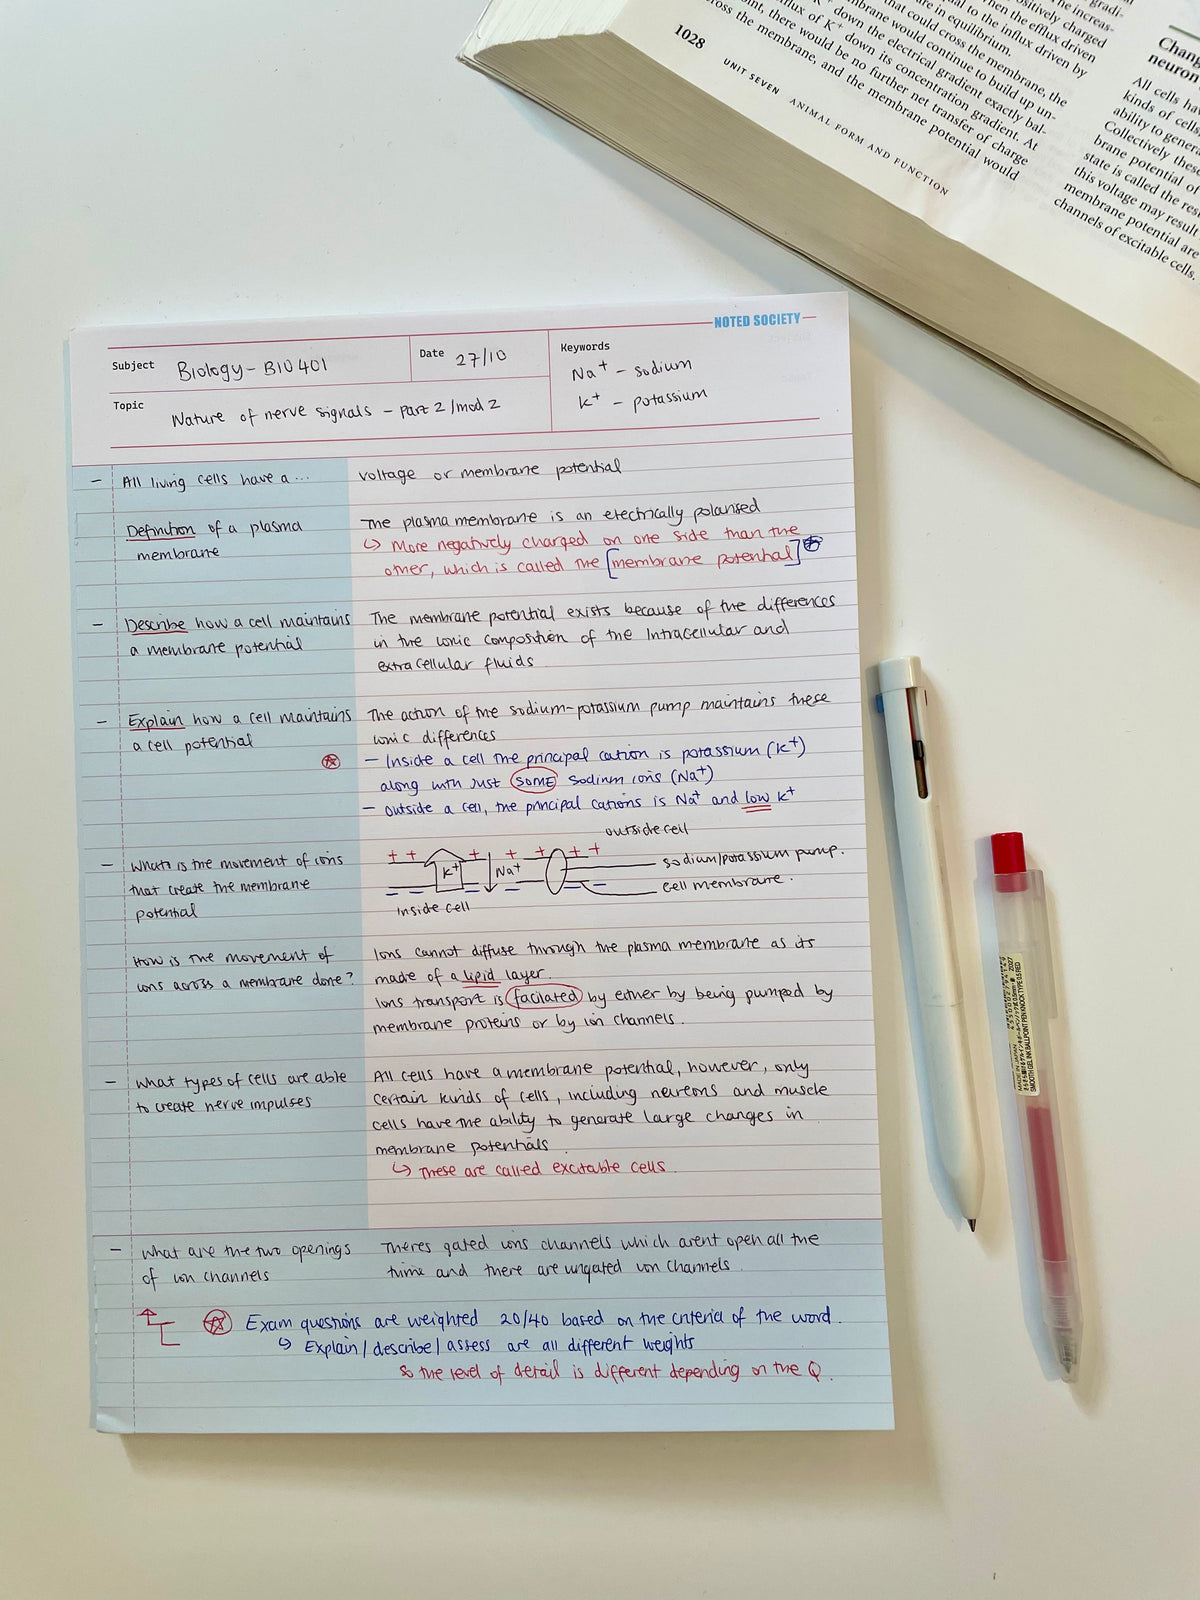 gradi-
The increas-
positively charged
When the efflux driven
equal to the influx driven by
are in equilibrium.
that could cross the membrane, the
membrane would continue to build up un-
K+ down the electrical gradient exactly bal-
influx of K+ down its concentration gradient. At
point, there would be no further net transfer of charge
cross the membrane, and the membrane potential would
1028 UNIT SEVEN ANIMAL FORM AND FUNCTION
Chang
neuron
All cells hav
kinds of cells,
ability to genera
Collectively these
brane potential of
state is called the res
this voltage may result
membrane potential are
channels of excitable cells.
NOTED SOCIETY
Subject Biology - BIO 401
Date 27/10
Keywords
Na+ - sodium
K+ - potassium
Topic Nature of nerve signals - part 2 / mod 2
- All living cells have a ... voltage or membrane potential
Definition of a plasma
membrane
The plasma membrane is an electrically polarised
↳ More negatively charged on one side than the
other, which is called the [membrane potential]
- Describe how a cell maintains
a membrane potential
The membrane potential exists because of the differences
in the ionic composition of the Intracellular and
extracellular fluids
- Explain how a cell maintains
a cell potential
The action of the sodium-potassium pump maintains these
ionic differences
- Inside a cell the principal cation is potassium (K+)
along with just SOME sodium ions (Na+)
- outside a cell, the principal cations is Na+ and low K+
- Whats is the movement of ions
that create the membrane
potential
outside cell
+ + + + + + +
K+ Na+
sodium/potassium pump.
cell membrane.
Inside cell
How is the movement of
ions across a membrane done?
Ions cannot diffuse through the plasma membrane as its
made of a lipid layer.
Ions transport is facilated by either by being pumped by
membrane proteins or by ion channels.
- what types of cells are able
to create nerve impulses
All cells have a membrane potential, however, only
certain kinds of cells, including neurons and muscle
cells have the ability to generate large changes in
membrane potentials.
↳ These are called excitable cells.
- what are the two openings
of ion channels
Theres gated ions channels which arent open all the
time and there are ungated ion channels.
Exam questions are weighted 20/40 based on the criteria of the word.
↳ Explain / describe / assess are all different weights
so the level of detail is different depending on the Q.
MADE IN JAPAN
SMOOTH GEL INK BALLPOINT PEN KNOCK TYPE 0.5 RED